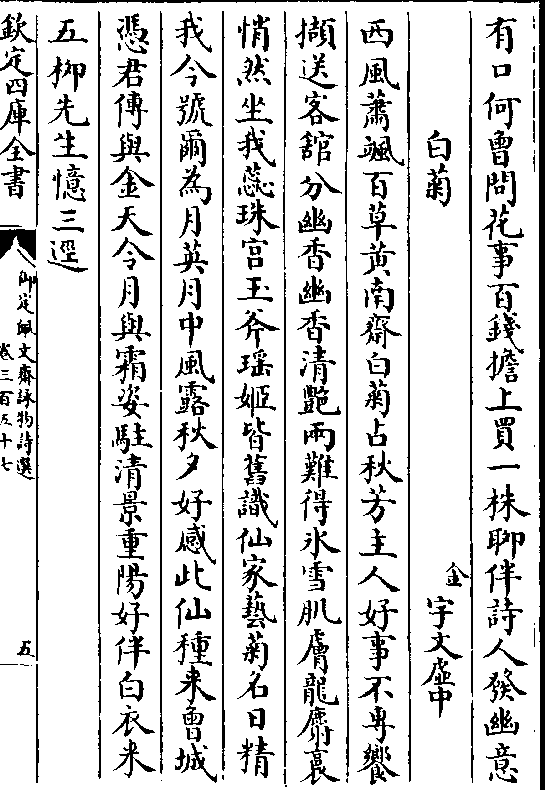 有口何曾問花事百錢擔上買一株聊伴詩人發幽意
白菊
金宇文虛中
西風蕭颯百草黃南齋白菊占秋芳主人好事不專饗
擷送客舘分幽香幽香清艷兩難得氷雪肌膚龍麝裛
悄然坐我蕊珠宫玉斧瑶姬皆舊識仙家藝菊名日精
我今號爾為月英月中風露秋夕好感此仙種来曾城
憑君傳與金天令月與霜姿駐清景重陽好伴白衣来
五栁先生憶三逕
欽定四庫全書
御定佩文齋詠物詩選
卷三百五十七
五